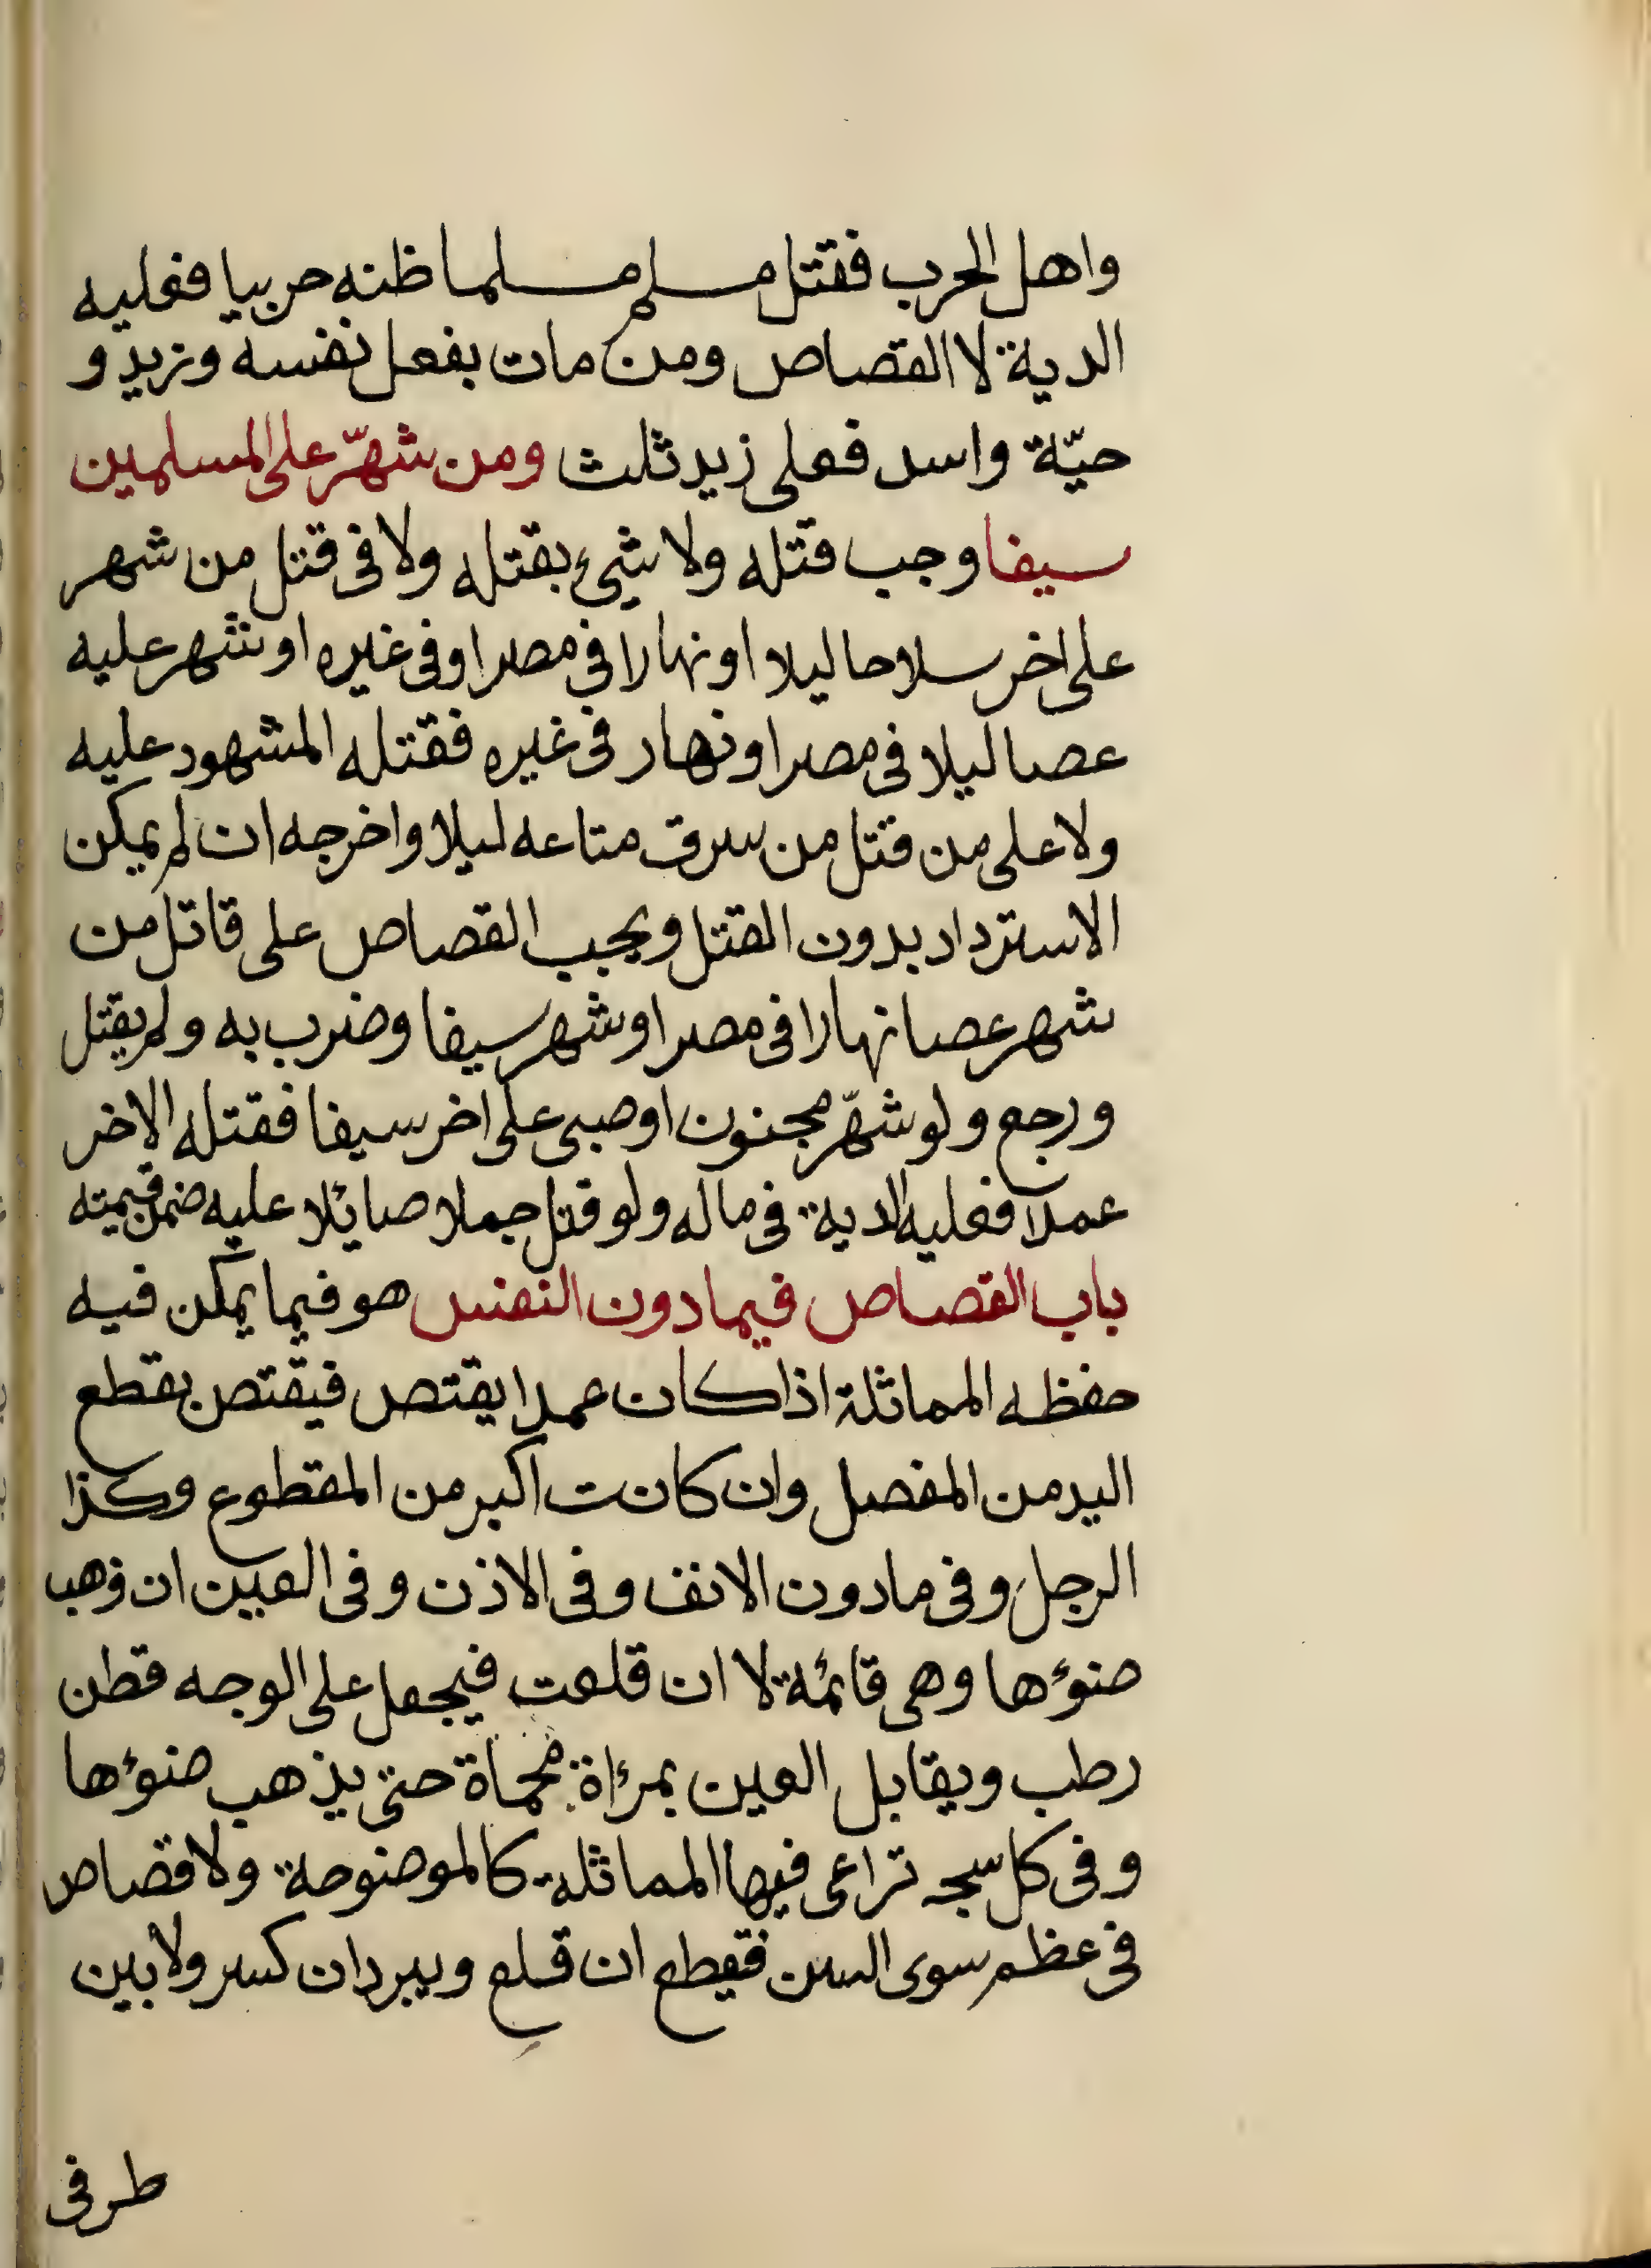 واهل الحرب فقتل مسلم مسلما ظنه حربيا فعليه
الدية لا القصاص ومن مات بفعل نفسه وزيد و
حيّة واسد فعلى زيد ثلث ومن شهّر على المسلمين
سيفا وجب قتله ولا شيء بقتله ولا فى قتل من شهر
على اخر سلاحا ليلا او نهارا فى مصر او فى غيره او شهر عليه
عصا ليلا فى مصر او نهار فى غيره فقتله المشهود عليه
ولا على من قتل من سرق متاعه ليلا واخرجه ان لم يمكن
الاسترداد بدون القتل ويجب القصاص على قاتل من
شهر عصا نهارا فى مصر او شهر سيفا وضرب به ولم يقتل
ورجع ولو شهّر مجنون او صبى على اخر سيفا فقتله الاخر
عمدا فعليه الدية فى ماله ولو قتل جملا صائلا عليه ضمن قيمته
باب القصاص فيما دون النفس هو فيما يمكن فيه
حفظه المماثلة اذا كان عمدا يقتص فيقتص بقطع
اليد من المفصل وان كانت اكبر من المقطوع وكذا
الرجل وفى مادون الانف وفى الاذن وفى العين ان ذهب
ضوءها وهى قائمة لا ان قلعت فيجعل على الوجه قطن
رطب ويقابل العين بمرءاة محماة حتى يذهب ضوءها
وفى كل سجه تراعى فيها المماثلة كالموضوحة ولا قصاص
فى عظم سوى السن فقيطع ان قلع ويبرد ان كسر ولا بين
طرفى